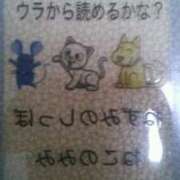 ウラから読めるかな？
ねずみのしっぽ
ねこのみみ